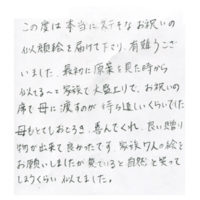 この度は本当にステキなお祝いの
似顔絵を届けて下さり、有難うござ
いました。最初に原案を見た時から
似てる〜と家族で大盛上りで、お祝いの
席で母に渡すのが待ち遠しいくらいでした
母もとてもおどろき、喜んでくれ、良い贈り
物が出来て良かったです。家族7人の絵を
お願いしましたが見ていると自然と笑って
しまうくらい似てました。